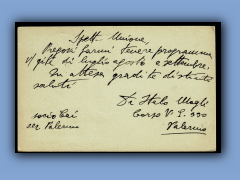 Spett. Unione,
Pregovi farmi tenere programma
gite di luglio agosto e settembre.
In attesa gradite distinti
saluti
Di Italo Magli
socio Cai
Corso V. E. 330
sez Palermo
Palermo